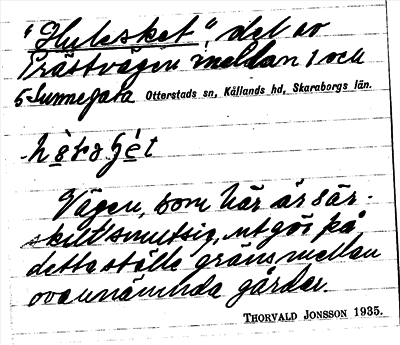 del av
Prästvägen mellan 1 och
5 Sunnegara Otterstads sn, Kållands hd, Skaraborgs län.
Vägen, som här är sär-
skilt smutsig, utgör på
detta ställe gräns mellan
ovannämnda gårdar.
THORVALD JONSSON 1935.